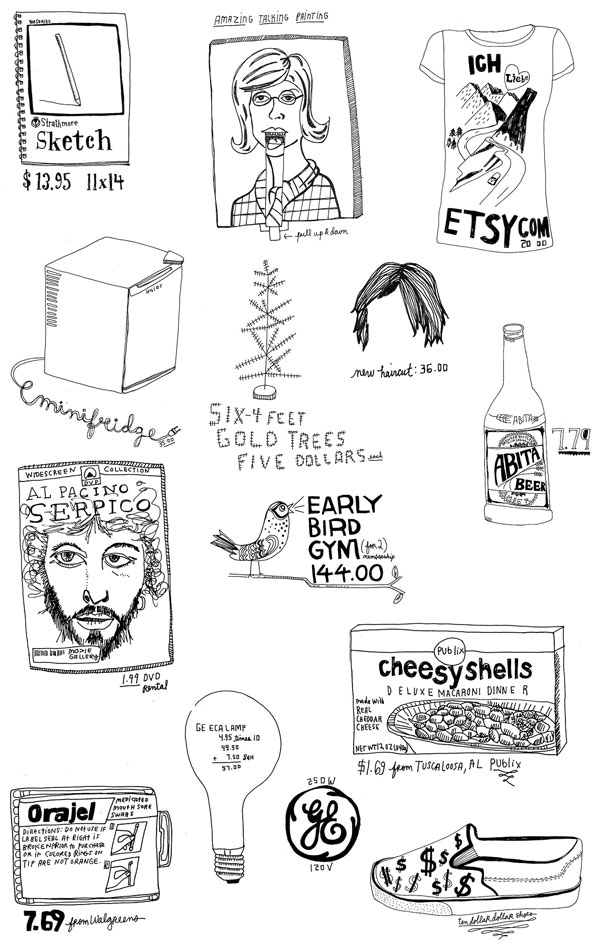 AMAZING TALKING PAINTING
Strathmore
Sketch
$13.95 11x14
← pull up & down
ICH
Liebe
ETSY.COM
20.00
Haier
minifridge
35.00
SIX-4 FEET
GOLD TREES
FIVE DOLLARS each
new haircut: 36.00
ABITA
ABITA
BEER
7.79
WIDESCREEN DVD COLLECTION
AL PACINO
SERPICO
MOVIE
GALLERY
1.99 DVD
Rental
EARLY
BIRD
GYM (for 2)
membership
144.00
Publix
cheesy shells
DELUXE MACARONI DINNER
made with
REAL
CHEDDAR
CHEESE
NET WT 12 OZ
$1.69 from TUSCALOOSA, AL Publix
GE ECALAMP
4.95 times 10
49.50
+ 7.50 S&H
57.00
250W
GE
120V
Orajel
MEDICATED
MOUTH SORE
SWABS
DIRECTIONS: DO NOT USE IF
LABEL SEAL AT RIGHT IS
BROKEN PRIOR TO PURCHASE
OR IF COLORED RINGS ON
TIP ARE NOT ORANGE.
7.69 from Walgreens
$ $ $ $ $ $ $ $
ten dollar dollar shoes